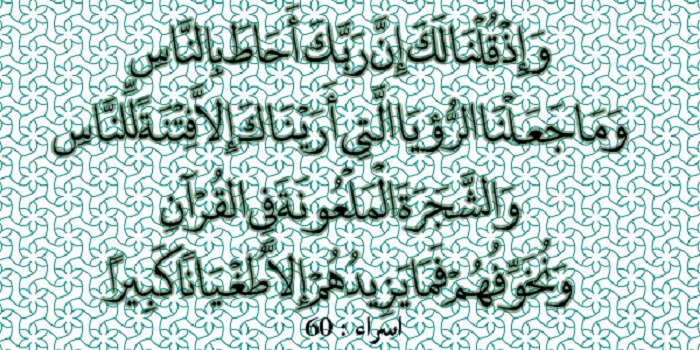 وَإِذْ قُلْنَا لَكَ إِنَّ رَبَّكَ أَحَاطَ بِالنَّاسِ
وَمَا جَعَلْنَا الرُّؤْيَا الَّتِي أَرَيْنَاكَ إِلاَّ فِتْنَةً لِّلنَّاسِ
وَالشَّجَرَةَ الْمَلْعُونَةَ فِي القُرْآنِ
وَنُخَوِّفُهُمْ فَمَا يَزِيدُهُمْ إِلاَّ طُغْيَانًا كَبِيرًا
اسراء : 60